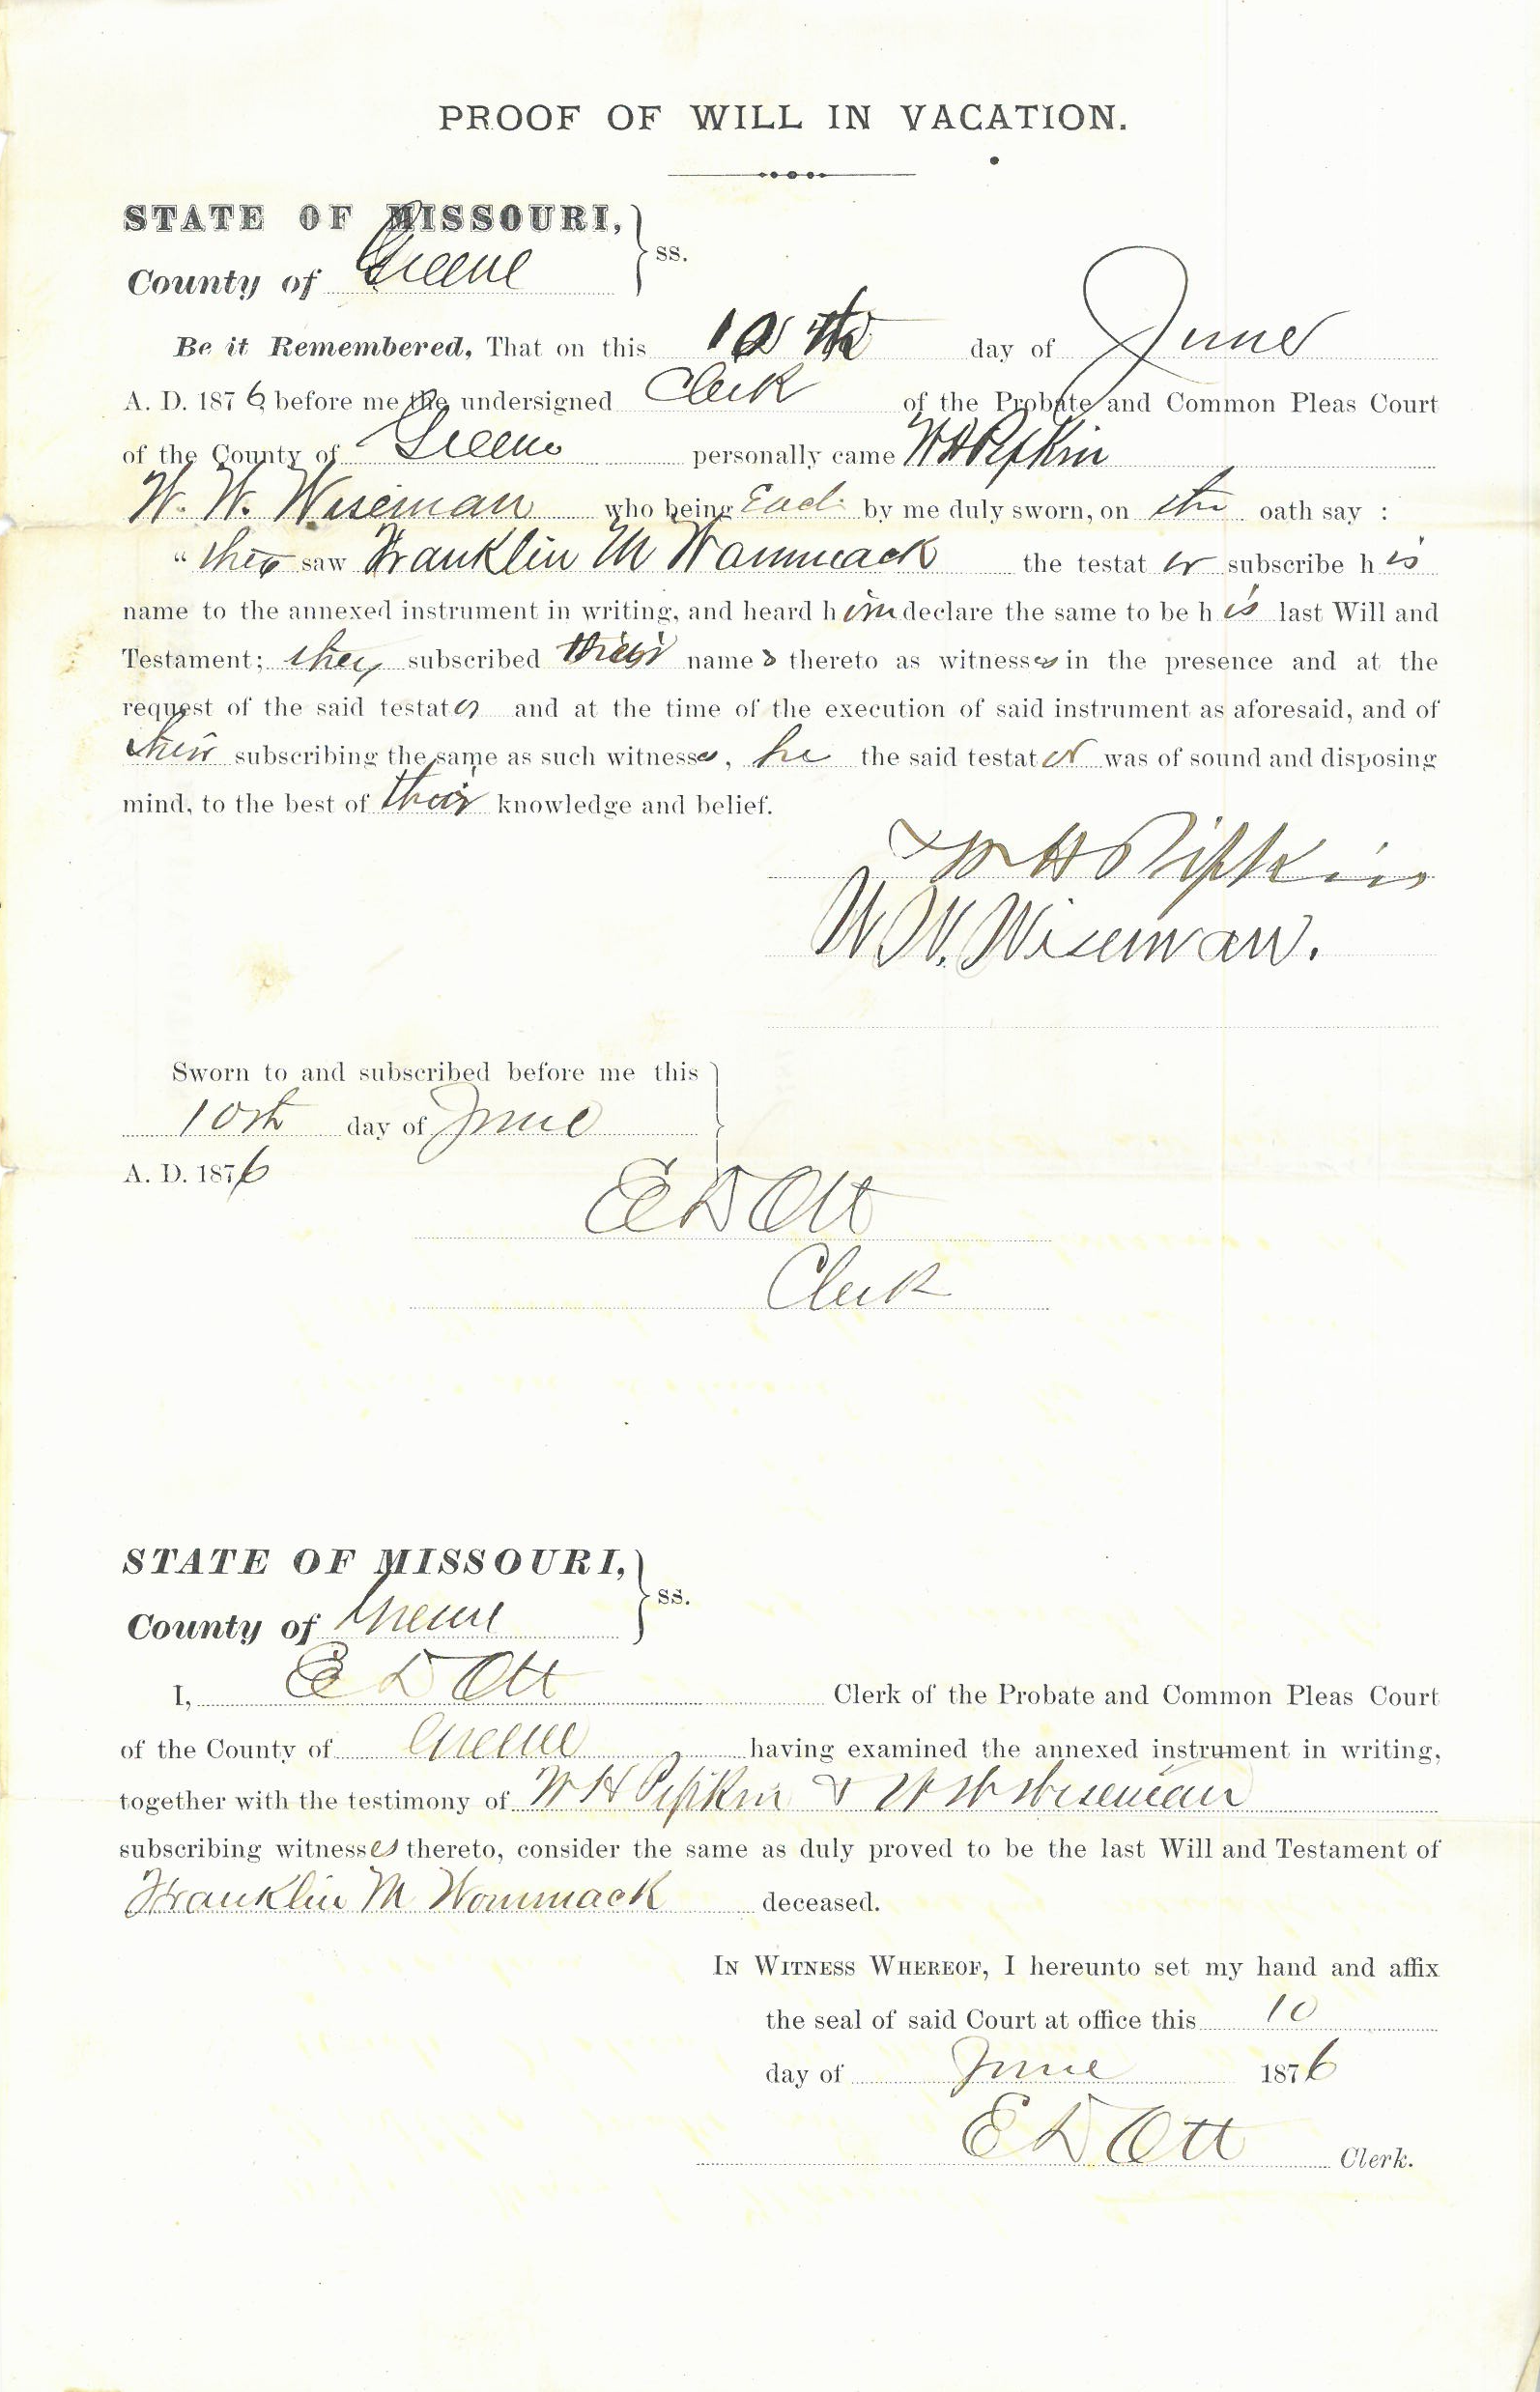 PROOF OF WILL IN VACATION.
STATE OF MISSOURI,
County of Greene
ss.
Be it Remembered, That on this 10th day of June
A. D. 1876 before me the undersigned Clerk of the Probate and Common Pleas Court
of the County of Greene personally came W H Pipkin
W. W. Wiseman who being Each by me duly sworn, on their oath say :
" they saw Franklin M Wammack the testat or subscribe h is
name to the annexed instrument in writing, and heard h im declare the same to be h is last Will and
Testament; they subscribed their name s thereto as witnesses in the presence and at the
request of the said testator and at the time of the execution of said instrument as aforesaid, and of
their subscribing the same as such witnesses, he the said testator was of sound and disposing
mind, to the best of their knowledge and belief.
W H Pipkin
W. W. Wiseman.
Sworn to and subscribed before me this
10th day of June
A. D. 1876
E D Ott
Clerk
STATE OF MISSOURI,
County of Greene
ss.
I, E D Ott Clerk of the Probate and Common Pleas Court
of the County of Greene having examined the annexed instrument in writing,
together with the testimony of W H Pipkin & W W Wiseman
subscribing witnesses thereto, consider the same as duly proved to be the last Will and Testament of
Franklin M Wommack deceased.
IN WITNESS WHEREOF, I hereunto set my hand and affix
the seal of said Court at office this 10
day of June 1876
E D Ott Clerk.